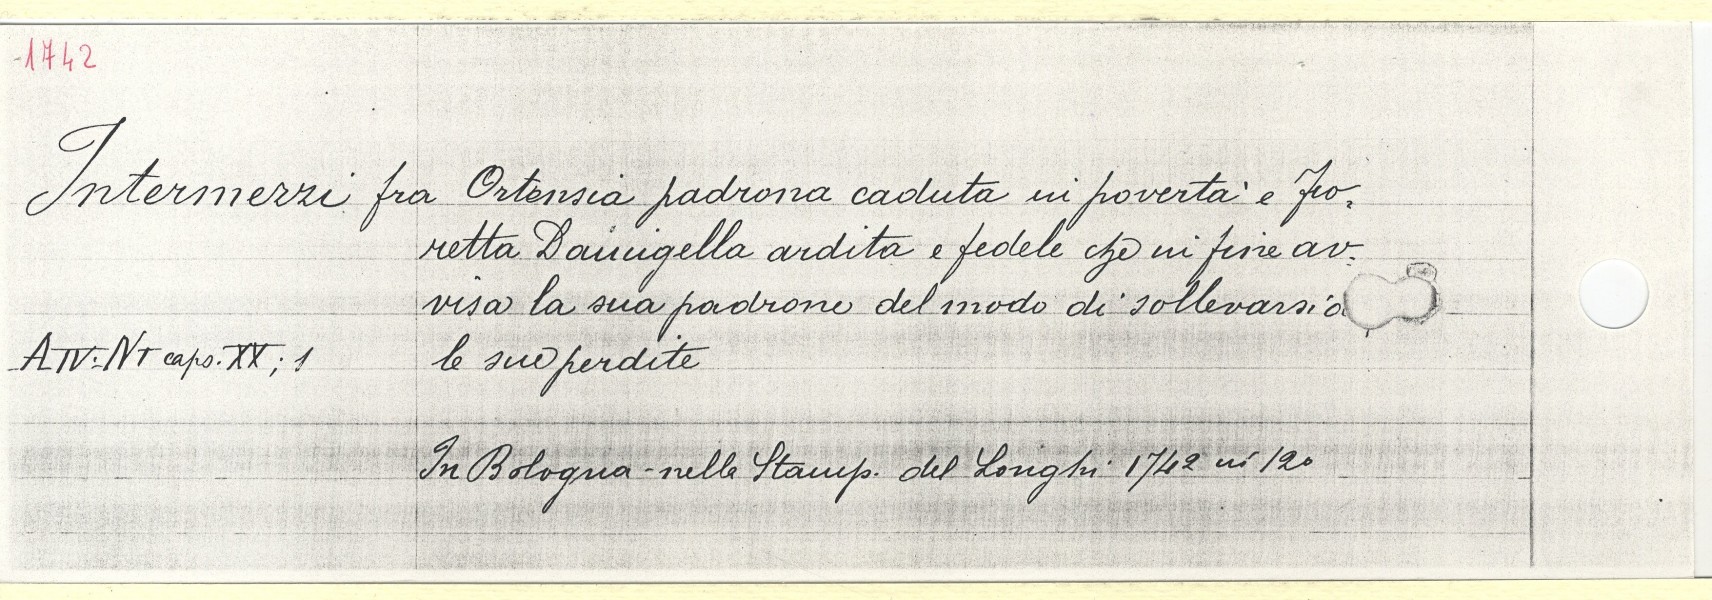 1742
Intermezzi fra Ortensia padrona caduta in poverta' e Fio=
retta Damigella ardita e fedele che in fine av=
visa la sua padrone del modo di sollevarsi d
A IV: N1 caps. XX; 1 le sue perdite
In Bologna - nella Stamp. del Longhi 1742 in 12o